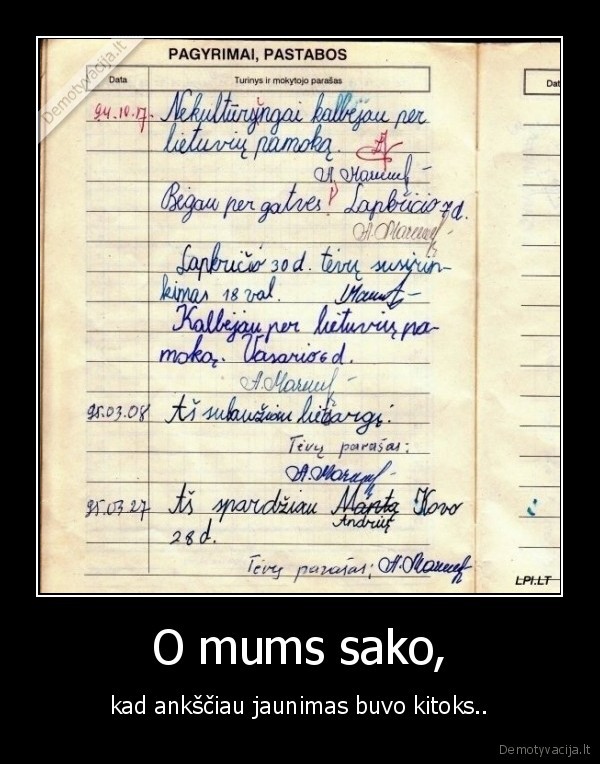 Demotyvacija.lt
PAGYRIMAI, PASTABOS
Data
Turinys ir mokytojo parašas
Dat
94.10.17. Nekultūringai kalbėjau per
lietuvių pamoką.
Bėgau per gatves! Lapkričio 7 d.
Lapkričio 30 d. tėvų susirin-
kimas 18 val.
Kalbėjau per lietuvių pa-
moką. Vasario 6 d.
95.03.08 Aš sulaužiau
Tėvų parašas:
95.03.27 Aš spardžiau Mantą Kovo
Andrių
28 d.
Tėvų parašas:
LPI.LT
O mums sako,
kad ankščiau jaunimas buvo kitoks..
Demotyvacija.lt